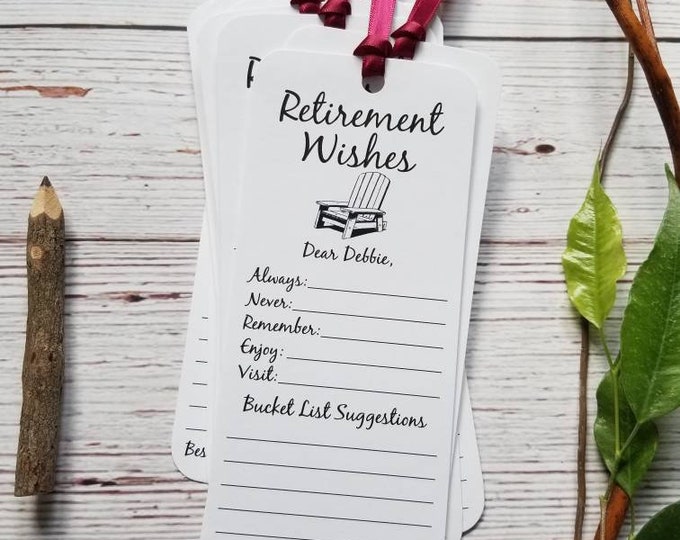 Retirement
Wishes
Dear Debbie,
Always:
Never:
Remember:
Enjoy:
Visit:
Bucket List Suggestions
Bes